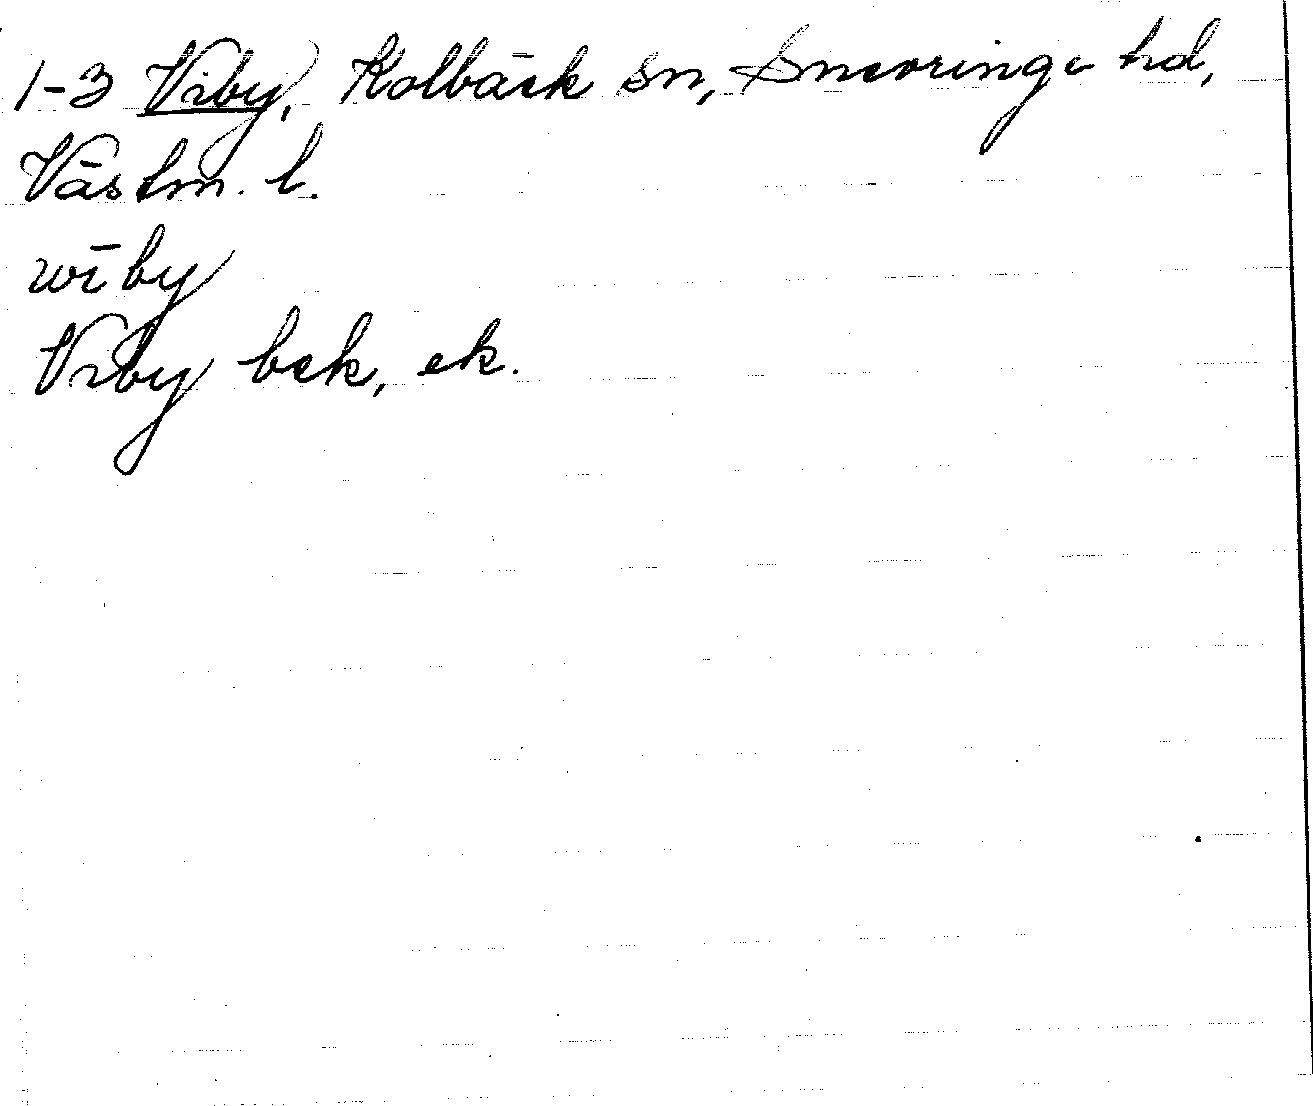 1-3 Viby, Kolbäck sn, Snevringe hd,
Västm. l.
wi̅by
Viby bek, ek.